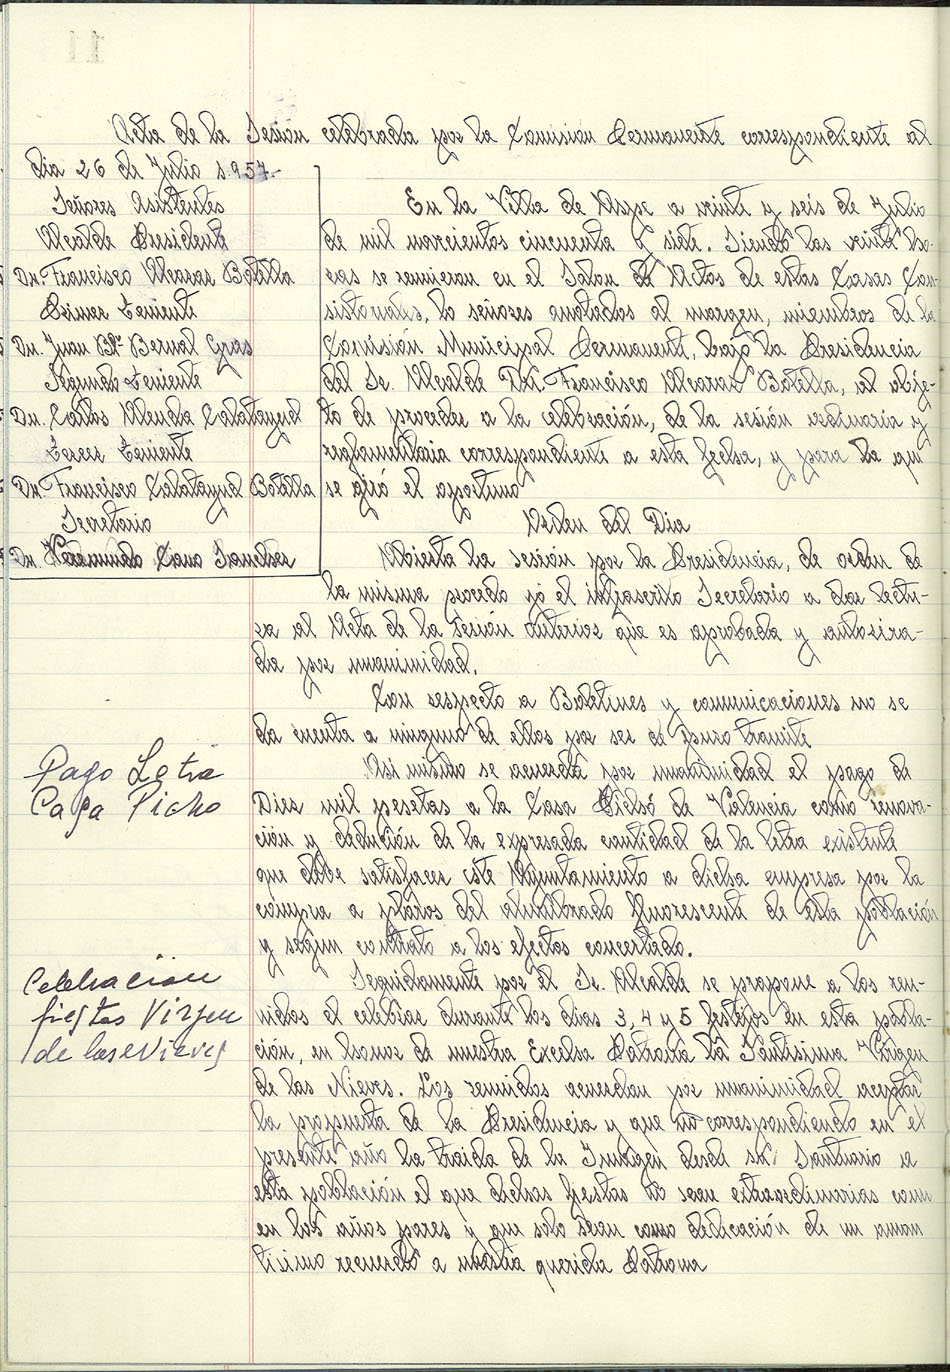 Acta de la Sesion celebrada por la Comision Permanente correspondiente al
dia 26 de Julio 1.957.-
Señores Asistentes
Alcalde Presidente
Dn. Francisco Alcaraz Botella
Primer Teniente
Dn. Juan Btª Bernal Gras
Segundo Teniente
Dn. Carlos Alenda Calatayud
Tercer Teniente
Dn. Francisco Calatayud Botella
Secretario
Dn. Cano Sanchez
En la Villa de Aspe a veinte y seis de Julio
de mil novecientos cincuenta y siete. Siendo las veinte ho-
ras se reunieron en el Salon de Actos de estas Casas Con-
sistoriales, lo señores anotados al margen, miembros de la
Comisión Municipal Permanente, bajo la Presidencia
del Sr. Alcalde Dn. Francisco Alcaraz Botella, al obje-
to de proceder a la celebración, de la sesión ordinaria y
reglamentaria correspondiente a esta fecha, y para la que
se giró el oportuno
Orden del Dia
Abierta la sesión por la Presidencia, de orden de
la misma procedo yó el infrascrito Secretario a dar lectu-
ra al Acta de la Sesión anterior que es aprobada y autoriza-
da por unanimidad.
Con respecto a Boletines y comunicaciones no se
da cuenta a ninguno de ellos por ser de puro tramite
Pago Letra
Casa Picho
Asi mismo se acuerda por unanimidad el pago de
Diez mil pesetas a la Casa de Valencia como renova-
ción y dedución de la expresada cantidad de la letra existente
que debe satisfacer este Ayuntamiento a dicha empresa por la
compra a plazos del alumbrado fluorescente de esta población
y según contrato a los efectos concertado.
Celebracion
fiestas Virgen
de las Nieves
Seguidamente por el Sr. Alcalde se propone a los reu-
nidos el celebrar durante los dias 3, 4 y 5 festejos en esta pobla-
ción, en honor de nuestra Excelsa Patrona la Santisima Virgen
de las Nieves. Los reunidos acuerdan por unanimidad aceptar
la propuesta de la Presidencia y que no correspondiendo en el
presente año la traida de la Imagen desde su Santuario a
esta población el que dichas fiestas no sean extraordinarias como
en los años pares y que solo sean como dedicación de un aman
tisimo recuerdo a nuestra querida Patrona